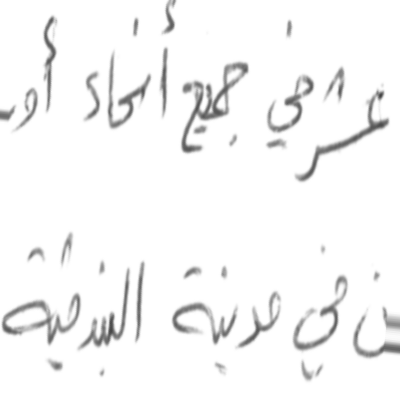 عشر في جميع أنحاء أور
ن في مدينة البندقية